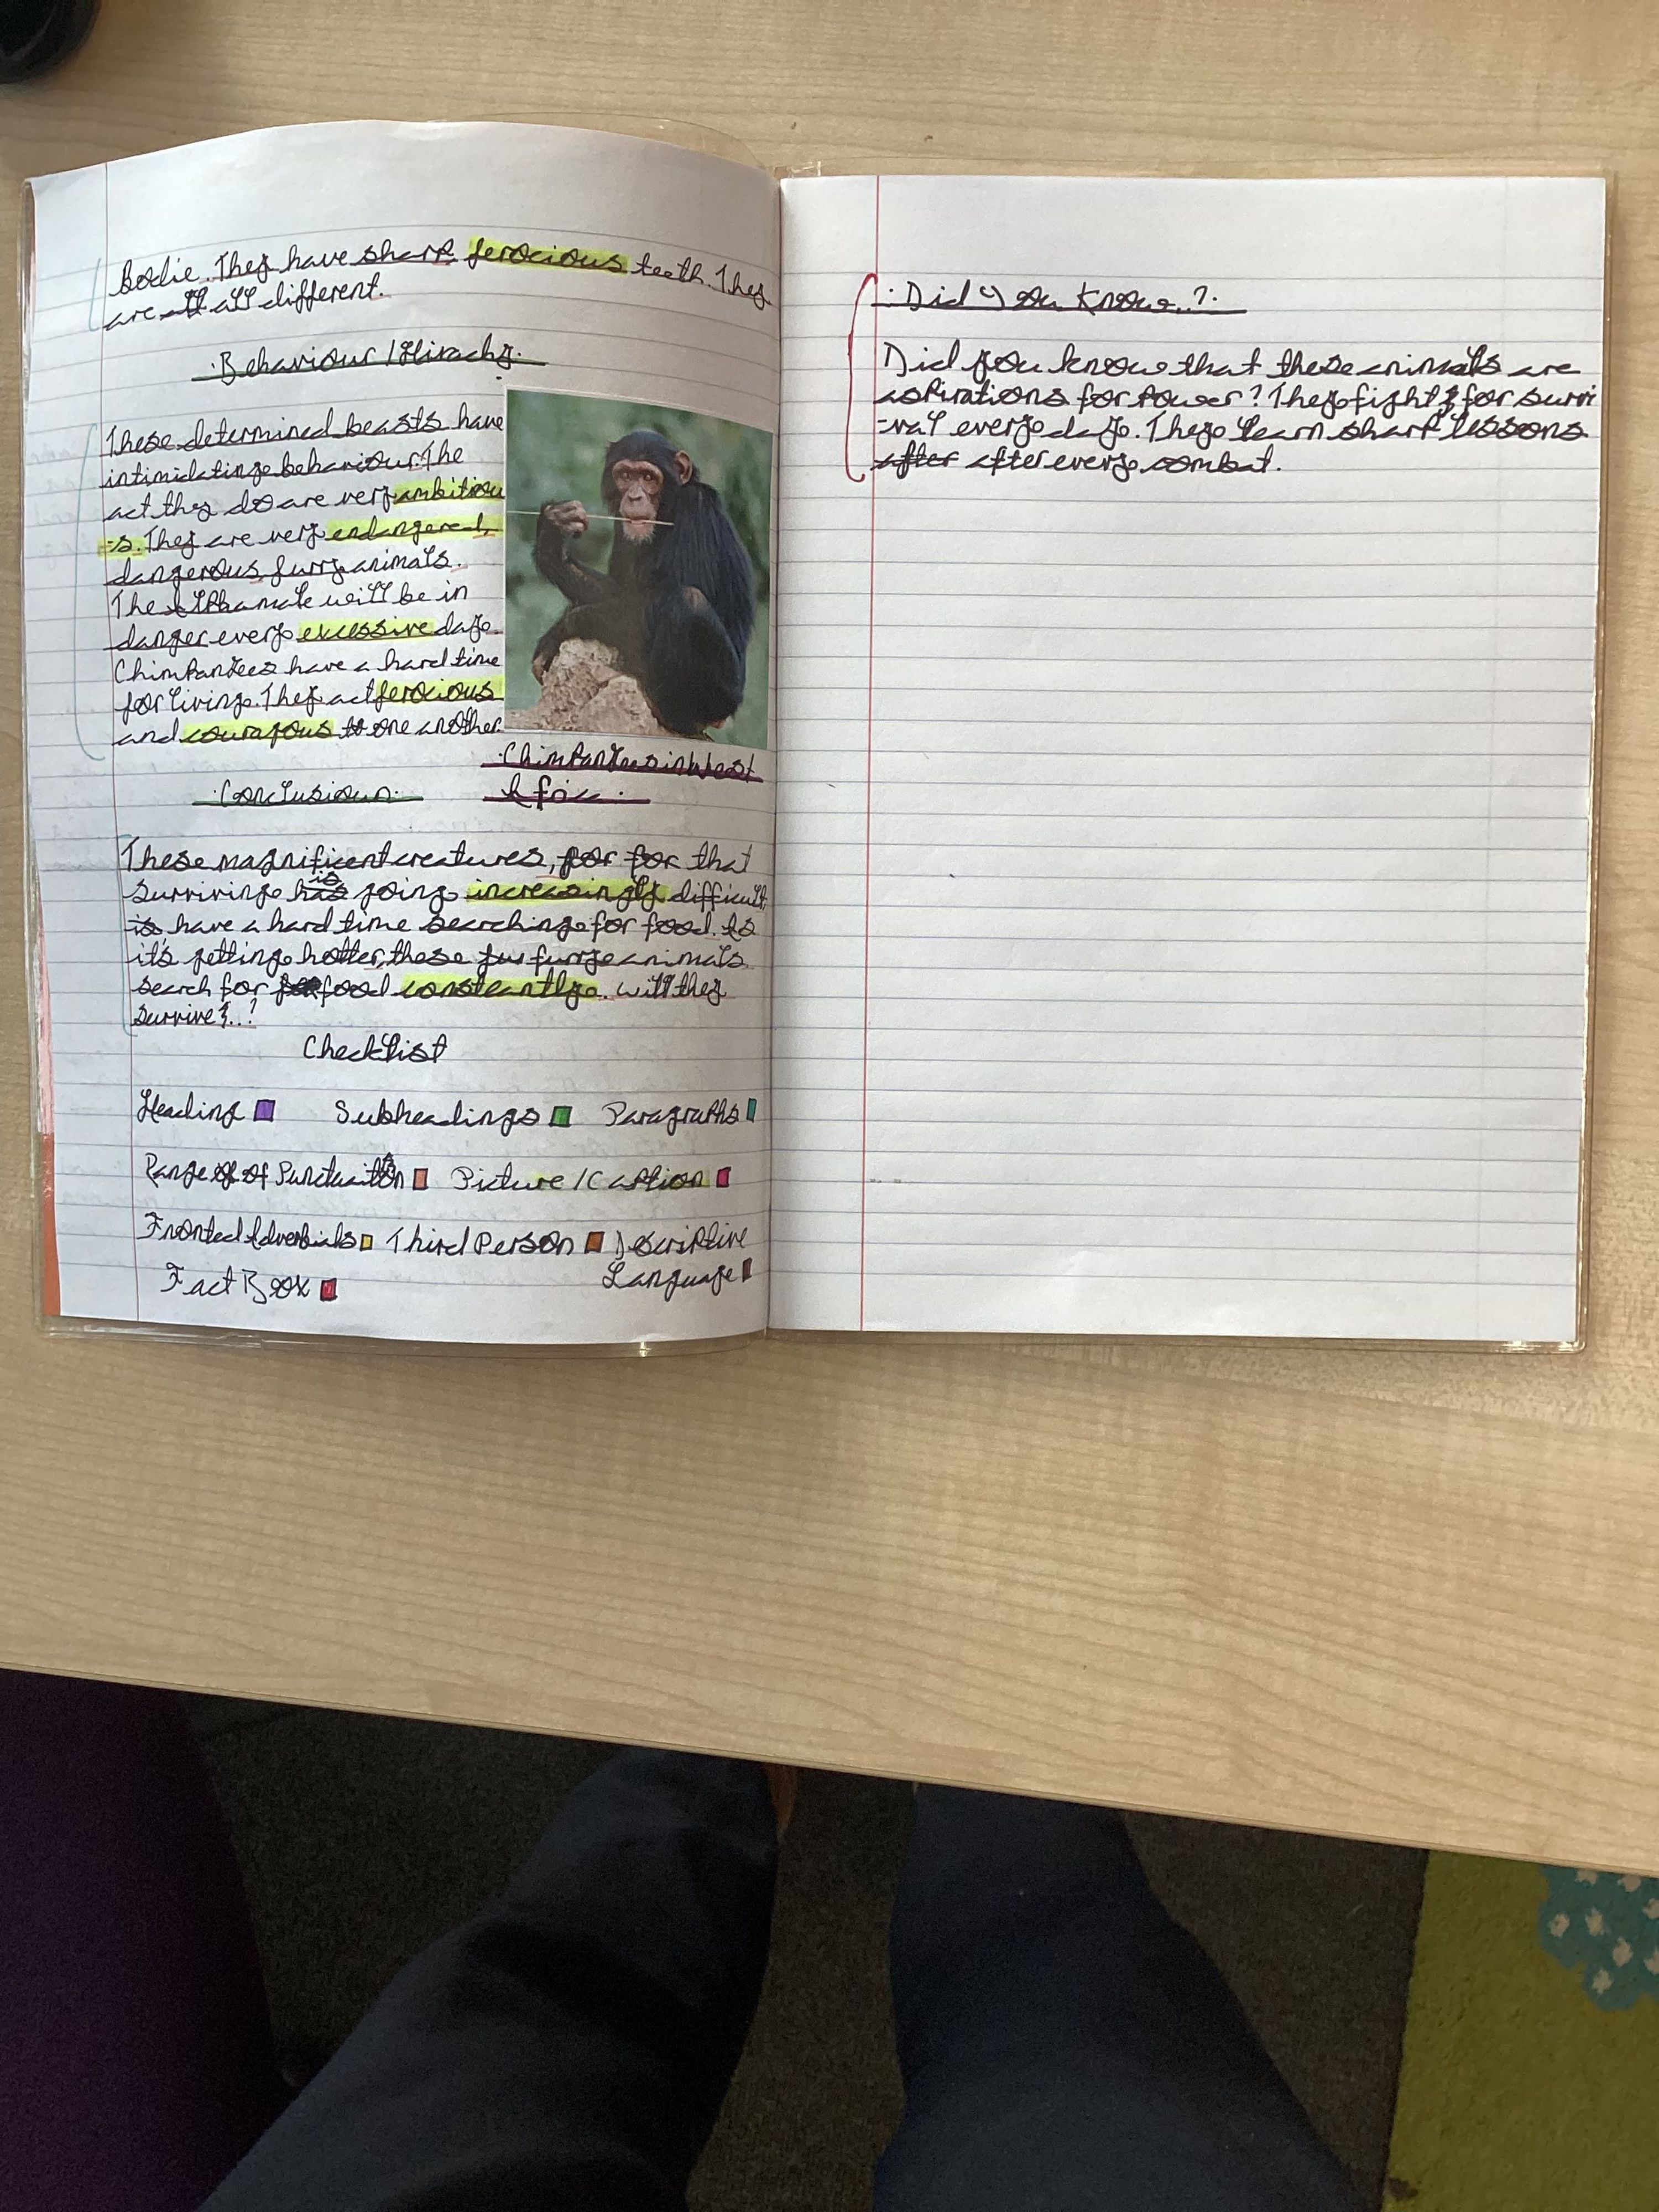 Bodie. They have sharp ferocious teeth. They
are all different.
Behaviour / Hirachy.
These determined beasts have
intimidating behaviour. The
act they do are very ambitiou
=s. They are very endangered,
dangerous, furry animals.
The alphamale will be in
danger every excessive day.
Chimpanzees have a hard time
for living. They act ferocious
and couragous to one another.
Chimpanzees in West
Africa.
Conclusion.
These magnificent creatures, for for that
surviving is going increasingly difficult
is have a hard time searching for food. As
it's getting hotter, these fur furry animals
search for food constantly. will they
survive...?
Checklist
Heading Subheadings Paragraphs
Range of of Punctuaition Picture / Caption
Fronted Adverbials Third Person Descriptive
Language
Fact Box
Did You Know..?
Did you know that these animals are
aspirations for power? They fight for survi
=val every day. They learn sharp lessons
after after every combat.